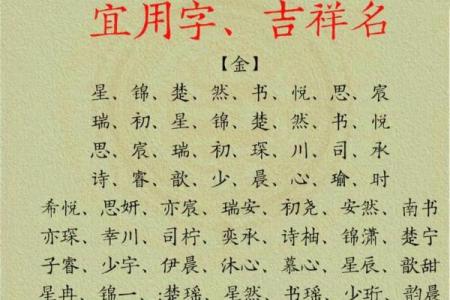 宜用字、吉祥名
【金】
星、锦、楚、然、书、悦、思、宸
瑞、初、星、锦、楚、然、书、悦
思、宸、瑞、初、琛、川、司、承
诗、睿、歆、少、晨、心、瑜、时
希悦、思妍、亦宸、瑞安、初尧、安然、南书
亦琛、幸川、司柠、奕承、诗柚、锦潇、楚宁
子睿、少宇、伊晨、沐心、慕心、星辰、歆甜
星冉、锦一、楚瑶、星然、书瑶、少珩、韵晨